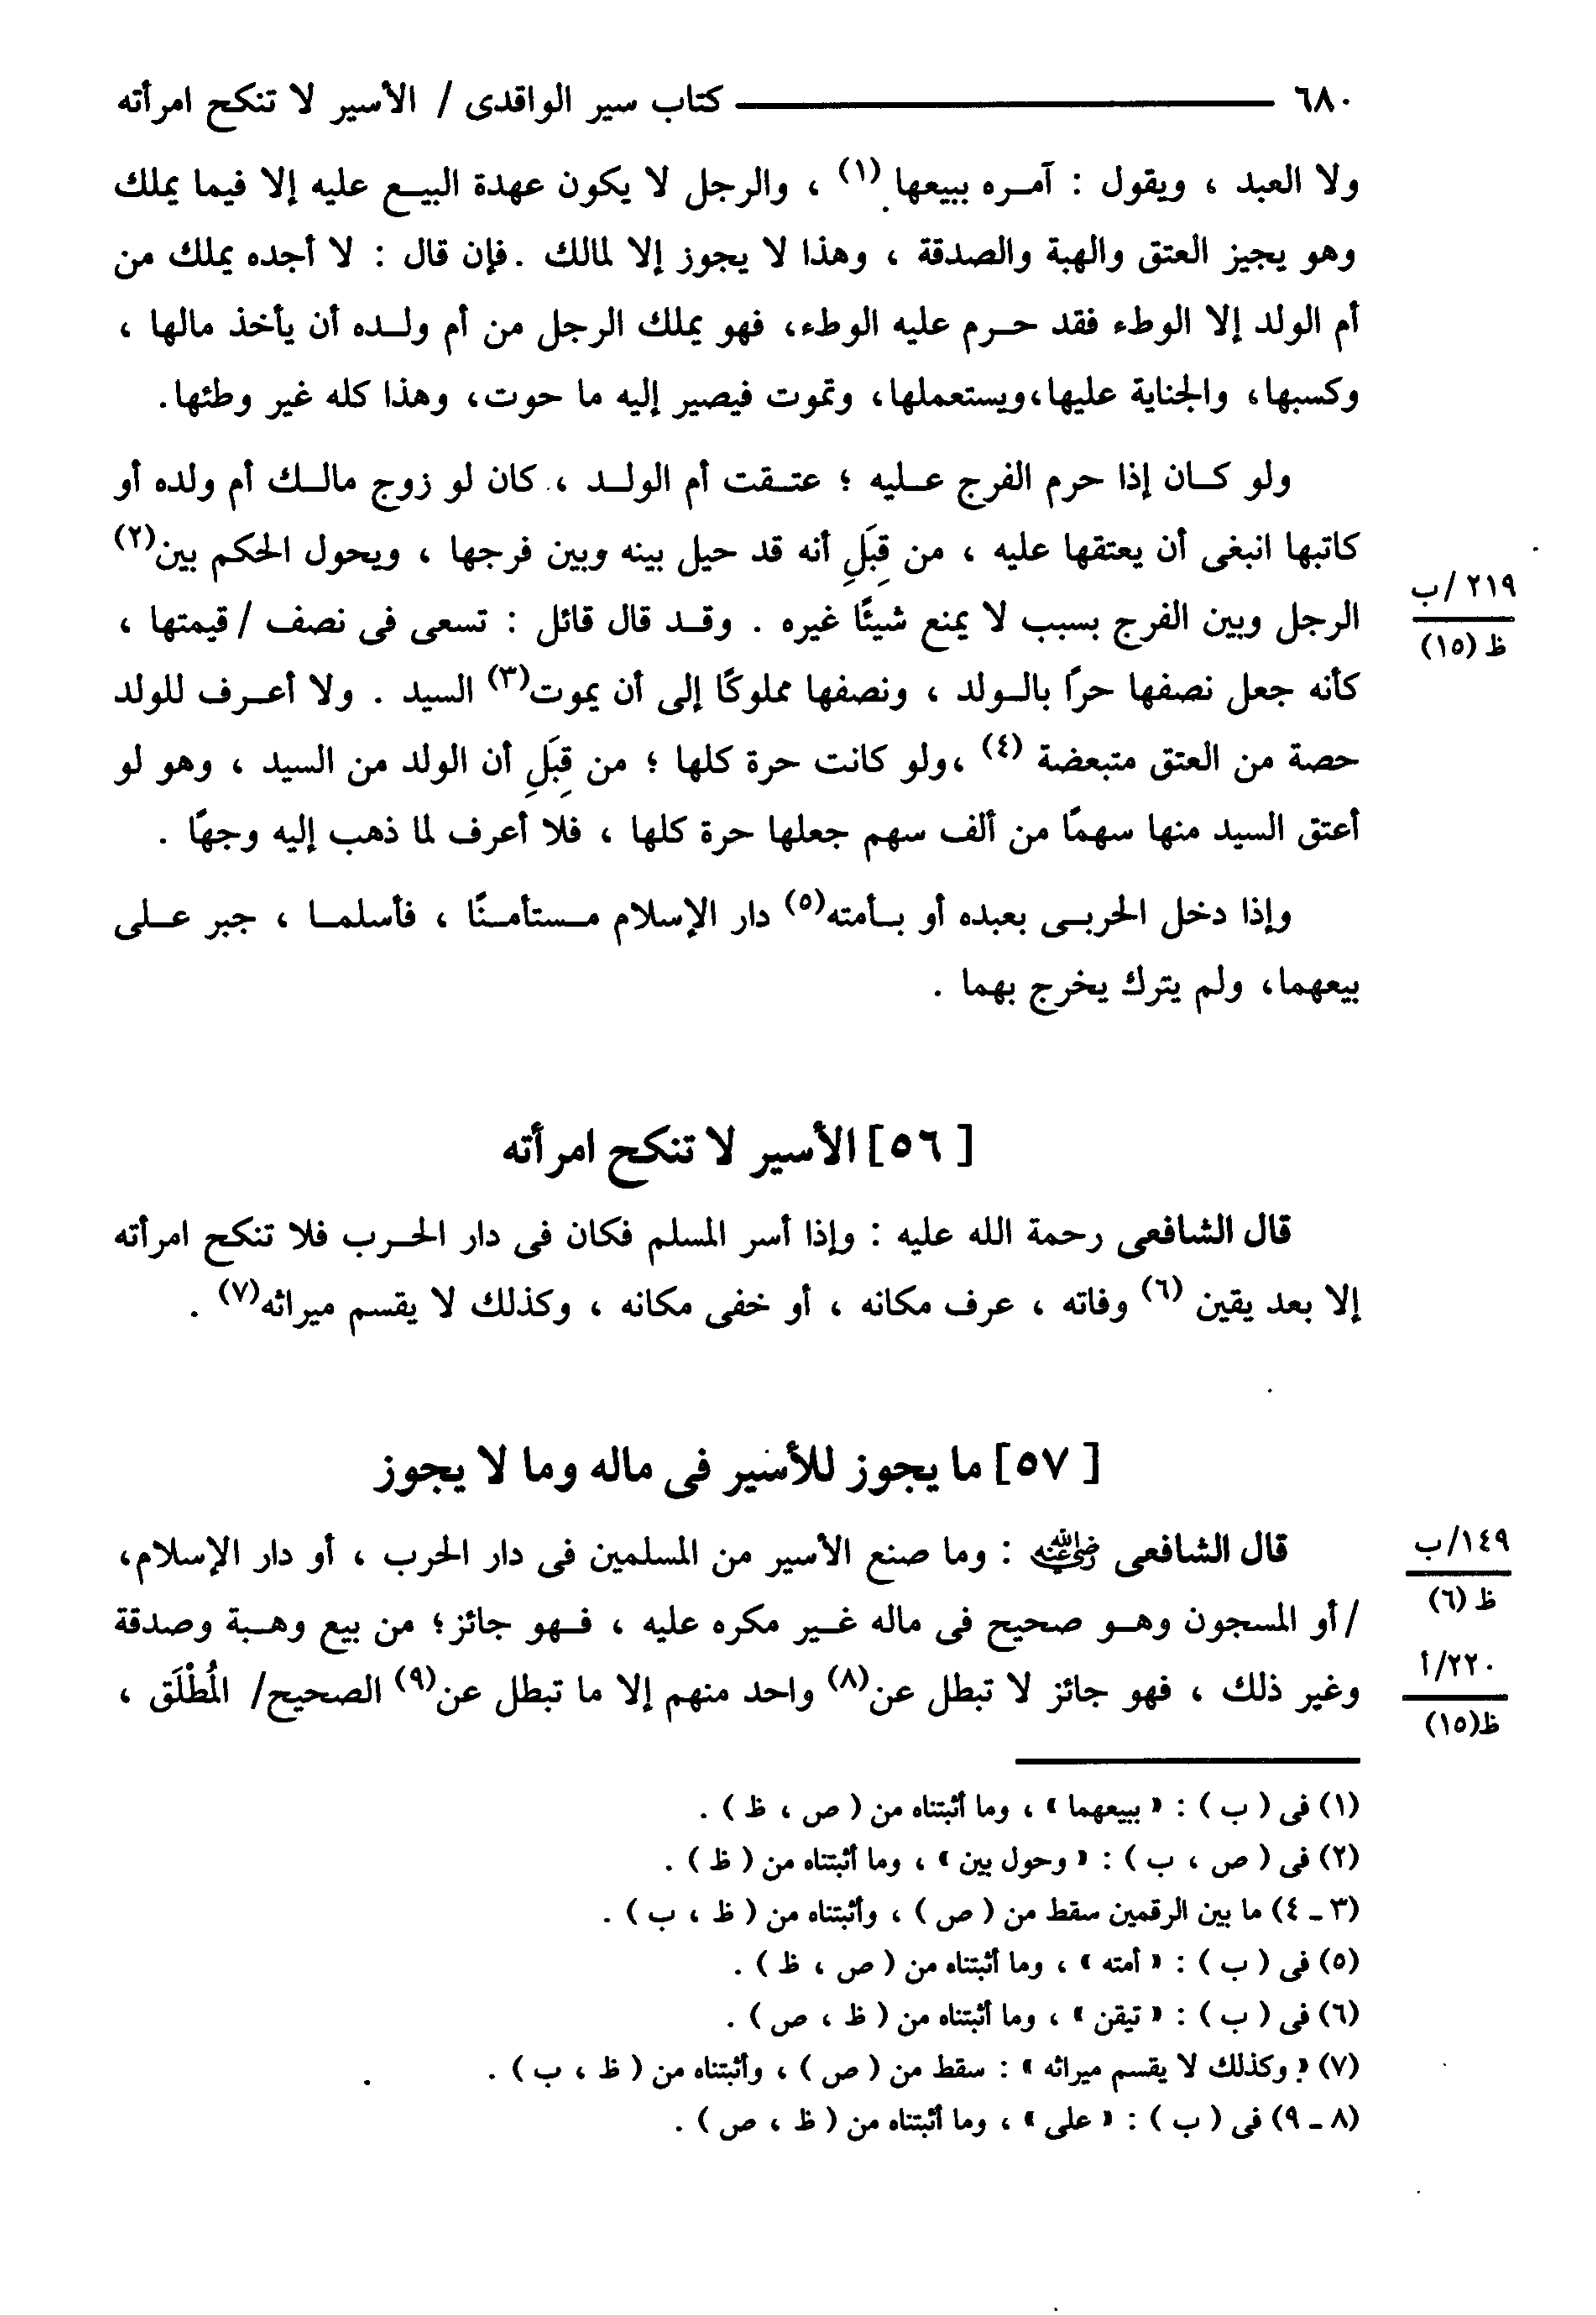 ٦٨٠ ـــــــ كتاب سير الواقدى / الأسير لا تنكح امرأته
ولا العبد ، ويقول : آمره ببيعها (١) ، والرجل لا يكون عهدة البيع عليه إلا فيما يملك
وهو يجيز العتق والهبة والصدقة ، وهذا لا يجوز إلا لمالك . فإن قال : لا أجده يملك من
أم الولد إلا الوطء فقد حرم عليه الوطء، فهو يملك الرجل من أم ولده أن يأخذ مالها ،
وكسبها، والجناية عليها،ويستعملها، وتموت فيصير إليه ما حوت، وهذا كله غير وطئها.
ولو كان إذا حرم الفرج عليه ؛ عتقت أم الولد ، كان لو زوج مالك أم ولده أو
كاتبها انبغى أن يعتقها عليه ، من قِبَلِ أنه قد حيل بينه وبين فرجها ، ويحول الحكم بين(٢)
الرجل وبين الفرج بسبب لا يمنع شيئًا غيره . وقد قال قائل : تسعى فى نصف / قيمتها ،
٢١٩ /ب
ظ (١٥)
كأنه جعل نصفها حرًا بالولد ، ونصفها مملوكًا إلى أن يموت(٣) السيد . ولا أعرف للولد
حصة من العتق متبعضة (٤) ،ولو كانت حرة كلها ؛ من قِبَلِ أن الولد من السيد ، وهو لو
أعتق السيد منها سهمًا من ألف سهم جعلها حرة كلها ، فلا أعرف لما ذهب إليه وجهًا .
وإذا دخل الحربى بعبده أو بأمته(٥) دار الإسلام مستأمنًا ، فأسلما ، جبر على
بيعهما، ولم يترك يخرج بهما .
[ ٥٦ ] الأسير لا تنكح امرأته
قال الشافعى رحمة الله عليه : وإذا أسر المسلم فكان فى دار الحرب فلا تنكح امرأته
إلا بعد يقين (٦) وفاته ، عرف مكانه ، أو خفى مكانه ، وكذلك لا يقسم ميراثه(٧) .
[ ٥٧ ] ما يجوز للأسير فى ماله وما لا يجوز
قال الشافعى رضي الله عنه : وما صنع الأسير من المسلمين فى دار الحرب ، أو دار الإسلام،
١٤٩/ب
ظ (٦)
/ أو المسجون وهو صحيح فى ماله غير مكره عليه ، فهو جائز؛ من بيع وهبة وصدقة
وغير ذلك ، فهو جائز لا تبطل عن(٨) واحد منهم إلا ما تبطل عن(٩) الصحيح/ المُطْلَق ،
٢٢٠/أ
ظ(١٥)
(١) فى ( ب ) : « ببيعهما » ، وما أثبتناه من ( ص ، ظ ) .
(٢) فى ( ص ، ب ) : « وحول بين » ، وما أثبتناه من ( ظ ) .
(٣ ـ ٤) ما بين الرقمين سقط من ( ص ) ، وأثبتناه من ( ظ ، ب ) .
(٥) فى ( ب ) : « أمته » ، وما أثبتناه من ( ص ، ظ ) .
(٦) فى ( ب ) : « تيقن » ، وما أثبتناه من ( ظ ، ص ) .
(٧) « وكذلك لا يقسم ميراثه » : سقط من ( ص ) ، وأثبتناه من ( ظ ، ب ) .
(٨ ـ ٩) فى ( ب ) : « على » ، وما أثبتناه من ( ظ ، ص ) .